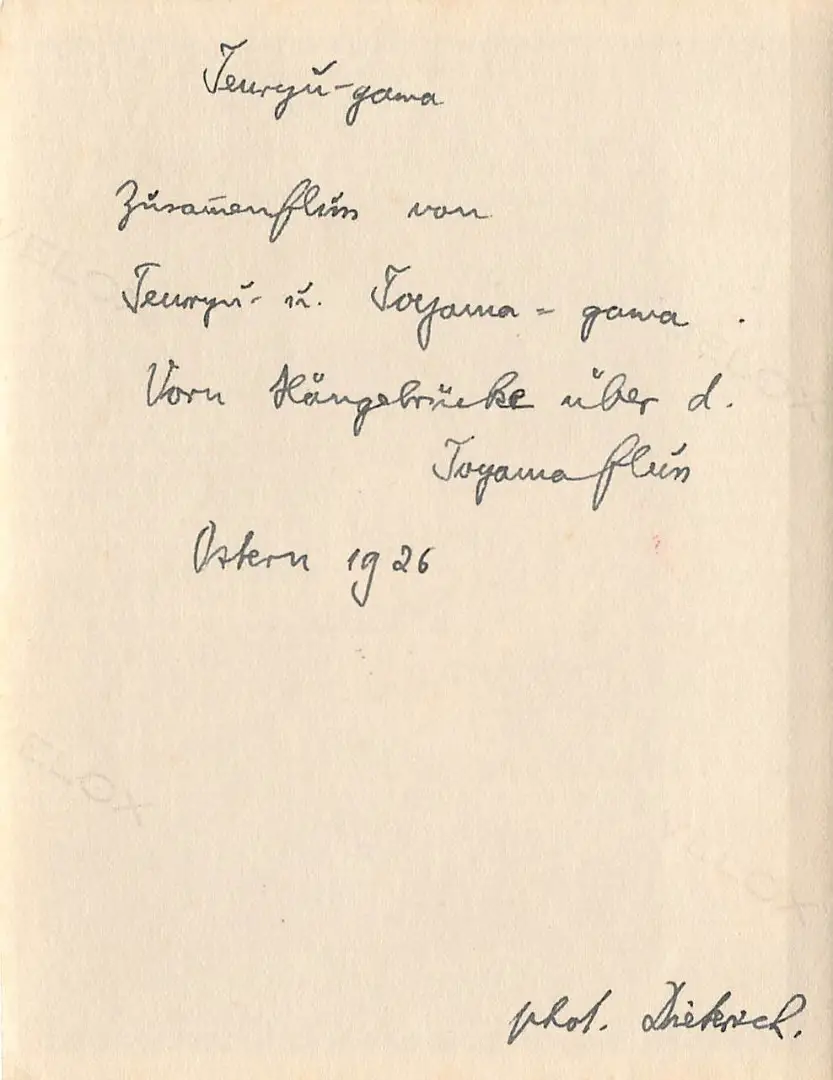 Tenryū-gawa
Zusam̄enfluss von
Tenryū- u. Toyama-gawa.
Vorn Hängebrücke über d.
Toyamafluss
Ostern 1926
phot.